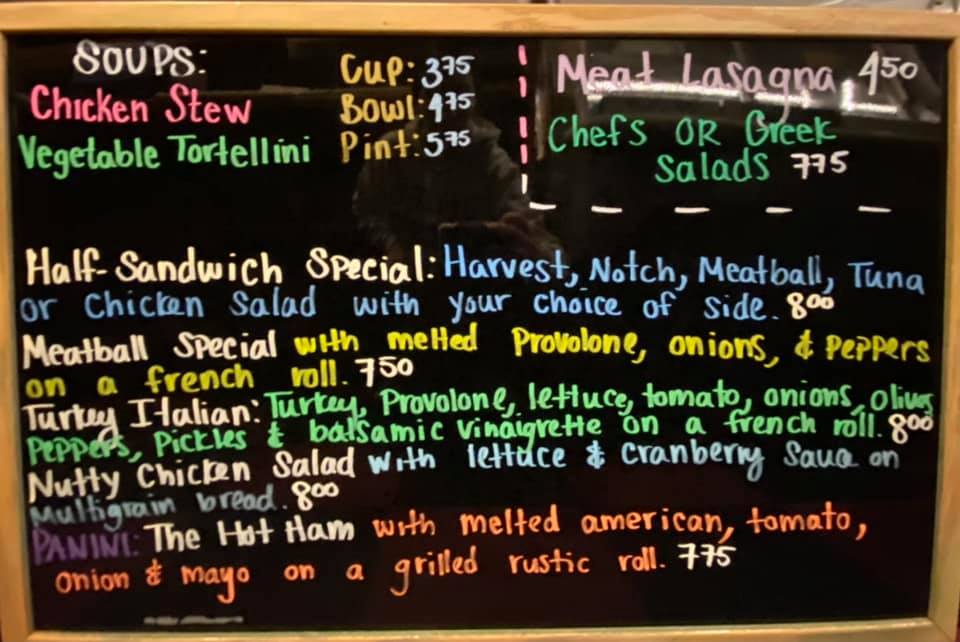 SOUPS:
Chicken Stew
Vegetable Tortellini
Cup: 375
Bowl: 475
Pint: 575
Meat Lasagna 450
Chefs OR Greek
Salads 775
Half-Sandwich Special: Harvest, Notch, Meatball, Tuna
or Chicken Salad with your choice of side. 800
Meatball Special with melted Provolone, onions, & Peppers
on a french roll. 750
Turkey Italian: Turkey, Provolone, lettuce, tomato, onions, olives
Peppers, Pickles & balsamic vinaigrette on a french roll. 800
Nutty Chicken Salad with lettuce & cranberry Sauce on
Multigrain bread. 800
PANINI: The Hot Ham with melted american, tomato,
onion & mayo on a grilled rustic roll. 775